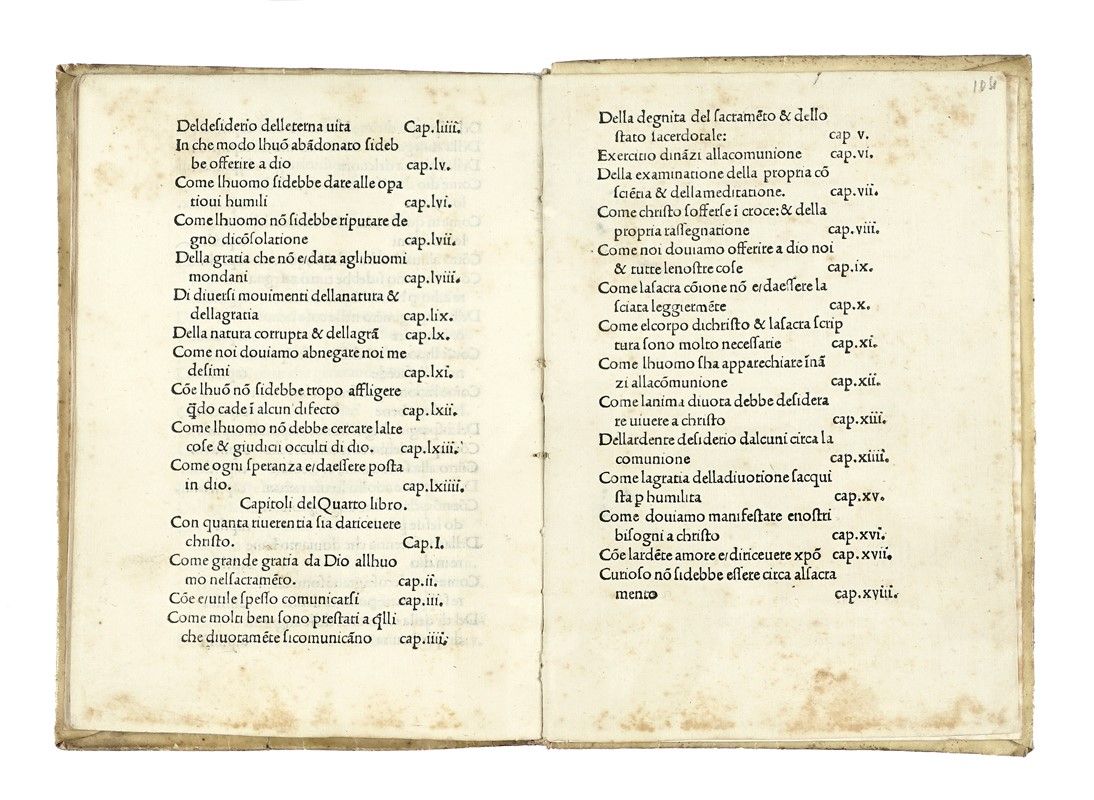 Deldesiderio delleterna uita Cap.liiii.
In che modo lhuō abādonato sideb
be offerire a dio cap.lv.
Come lhuomo sidebbe dare alle opa
tioui humili cap.lvi.
Come lhuomo nō sidebbe riputare de
gno dicōsolatione cap.lvii.
Della gratia che nō e/data aglihuomi
mondani cap.lviii.
Di diuersi mouimenti dellanatura &
dellagratia cap.lix.
Della natura corrupta & dellagrā cap.lx.
Come noi douiamo abnegare noi me
desimi cap.lxi.
Cōe lhuō nō sidebbe tropo affligere
q̄do cade ī alcun difecto cap.lxii.
Come lhuomo nō debbe cercate lalte
cose & giudicii occulti di dio. cap.lxiii.
Come ogni speranza e/daessere posta
in dio. cap.lxiiii.
Capitoli delQuarto libro.
Con quanta riuerentia sia dariceuere
christo. Cap.I.
Come grande gratia da Dio allhuo
mo nelsacramēto. cap.ii.
Cōe e/utile spesso comunicarsi cap.iii.
Come molti beni sono prestati a q̄lli
che diuotamēte sicomunicāno cap.iiii.
1051
Della degnita del sacramēto & dello
stato sacerdotale: cap v.
Exercitio dināzi allacomunione cap.vi.
Della examinatione della propria cō
sciētia & dellameditatione. cap.vii.
Come christo sofferse ī croce:& della
propria rassegnatione cap.viii.
Come noi douiamo offerire a dio noi
& tutte lenostre cose cap.ix.
Come lasacra cōione nō e/daessere la
sciata leggiermēte cap.x.
Come elcorpo dichristo & lasacra scrip
tura sono molto necessarie cap.xi.
Come lhuomo sha apparechiare īnā
zi allacōmunione cap.xii.
Come lanima diuota debbe desidera
re uiuere a christo cap.xiii.
Dellardente desiderio dalcuni circa la
comunione cap.xiiii.
Come lagratia delladiuotione sacqui
sta ꝑ humilita cap.xv.
Come douiamo manifestare enostri
bisogni a christo cap.xvi.
Cōe lardēte amore e/diriceuere xpō cap.xvii.
Curioso nō sidebbe essere circa alsacra
mento cap.xviii.